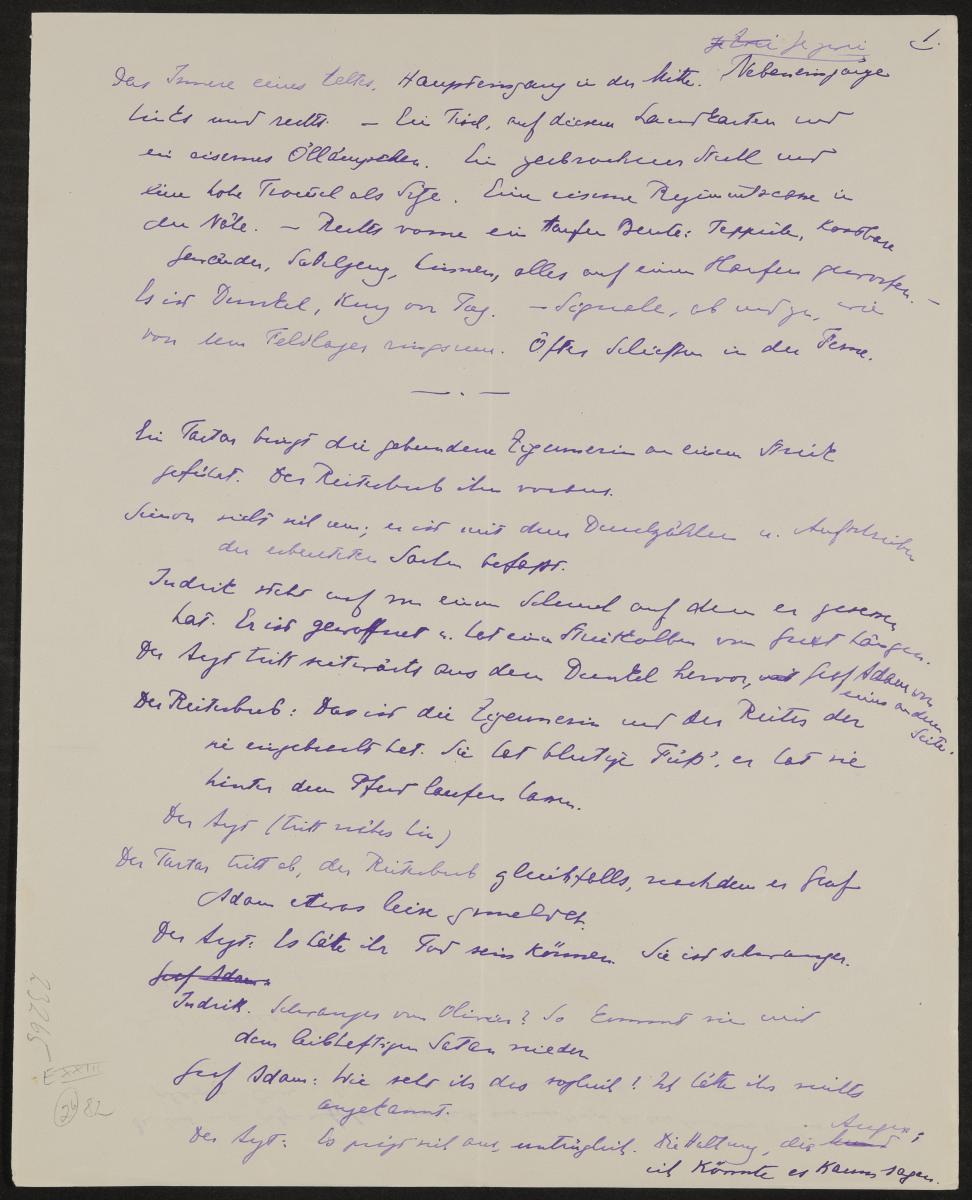 1.
Das Innere eines Zeltes. Haupteingang in der Mitte. Nebeneingänge
links und rechts. — Ein Tisch, auf diesem Landkarten und
ein eisernes Öllämpchen. Ein zerbrochener Stuhl und
eine hohe Trommel als Sitze. Eine eiserne Regimentscasse in
der Nähe. — Rechts vorne ein Haufen Beute: Teppiche, kostbare
Gewänder, Sattelzeug, Linnen, alles auf einen Haufen geworfen. —
Es ist Dunkel, kurz vor Tag. — Signale, ab und zu, wie
von dem Feldlager ringsum. Öfter Schießen in der Ferne.
— . —
Ein Tartar bringt die gebundene Zigeunerin an einem Strick
geführt. Der Reiterbub ihm voraus.
Simon sieht sich um; er ist mit dem Durchzählen u. Aufschreiben
der erbeuteten Sachen befasst.
Indrik steht auf von einem Schemel auf dem er gesessen
hat. Er ist gewaffnet u. hat einen Streitkolben vom Gurt hängen.
Der Arzt tritt seitwärts aus dem Dunkel hervor, Graf Adam von
einer andern
Seite.
Der Reiterbub: Das ist die Zigeunerin und der Reiter der
sie eingebracht hat. Sie hat blutige Füß', er hat sie
hinter dem Pferd laufen lassen.
Der Arzt (tritt näher hin)
Der Tartar tritt ab, der Reiterbub gleichfalls, nachdem er Graf
Adam etwas leise gemeldet.
Der Arzt: Es hätte ihr Tod sein können. Sie ist schwanger.
Graf Adam:
Indrik. Schwanger von Olivier? So kommt sie mit
dem leibhaftigen Satan nieder
Graf Adam: Wie seht ihr das sogleich? Ich hätte ihr nichts
angekannt.
Der Arzt: Es prägt sich aus, untrüglich. Die Haltung, die Mund Augen;
ich könnte es kaum sagen.
23265
E XXIII
24 82